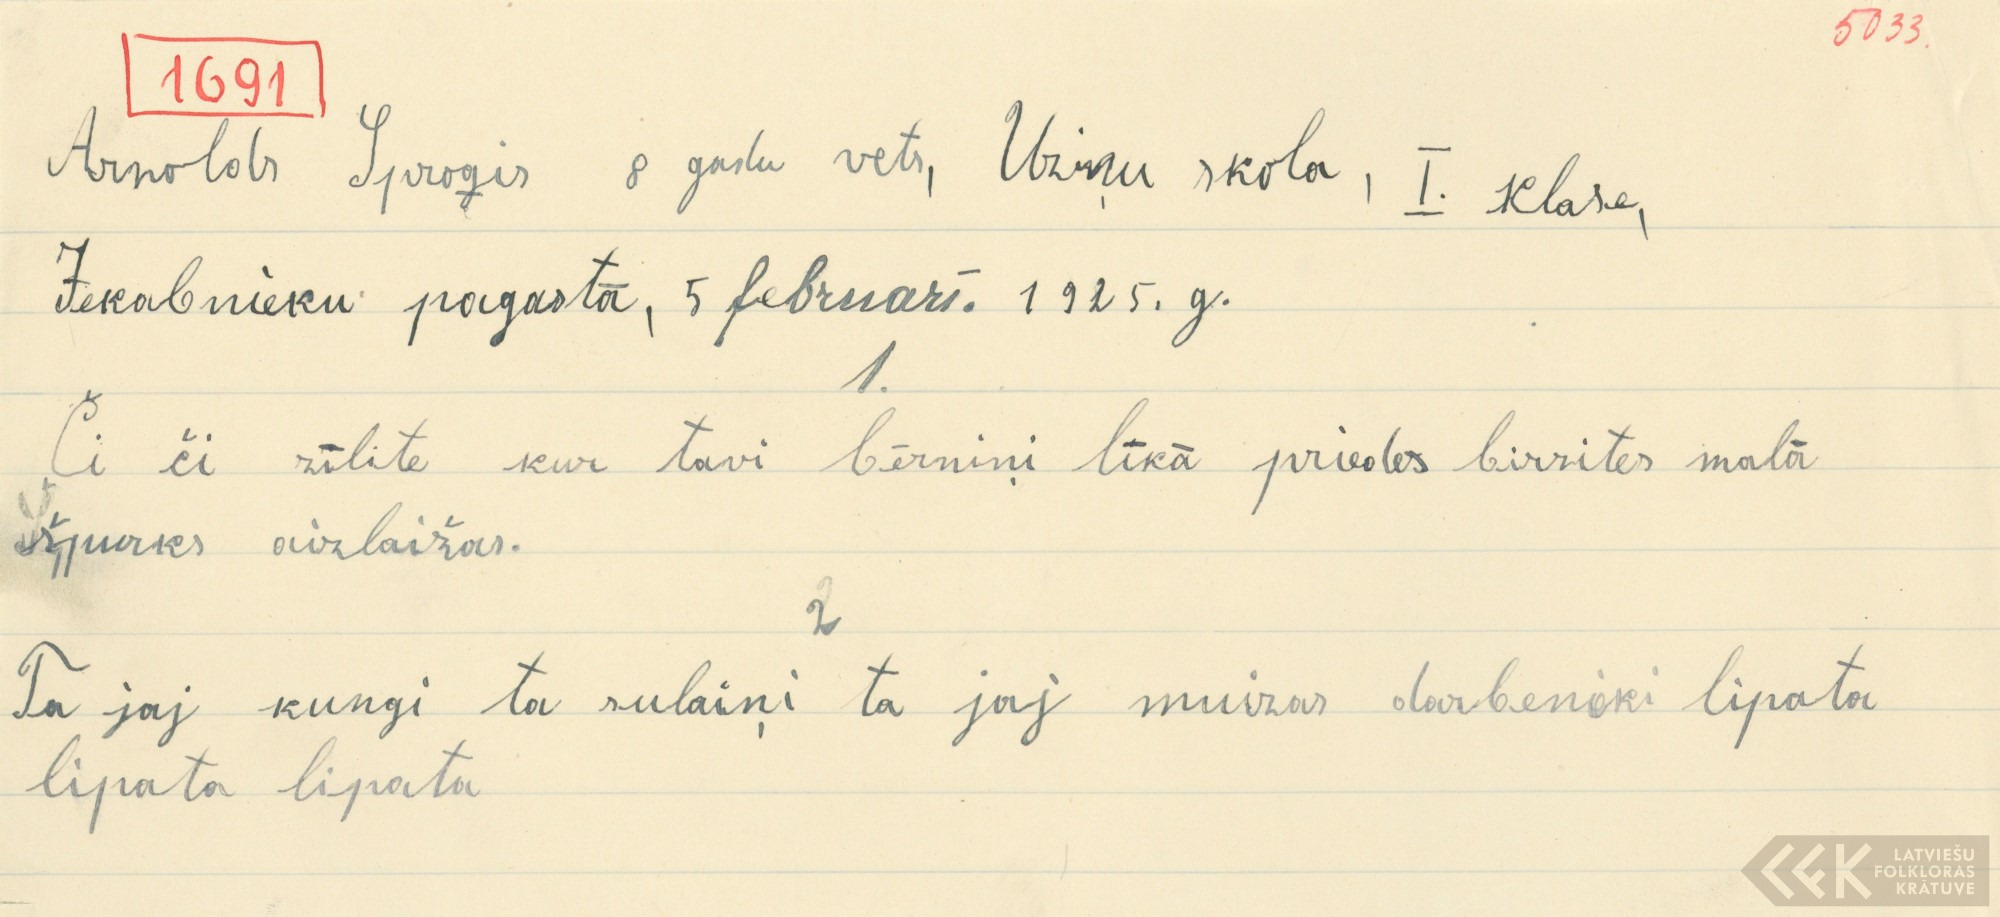 5033.
1691
Arnolds Sproģis 8 gadu vets, Uziņu skola, I. klase,
Jekabnieku pagastā, 5 februarī. 1925. g.
1.
Či či zīlite kur tavi bērniņi līkā priedes birzites malā
špurks aizlaižas.
2
Ta jaj kungi ta sulaiņi ta jaj muizas darbenieki lipata
lipata lipata
LATVIEŠU
FOLKLORAS
KRĀTUVE